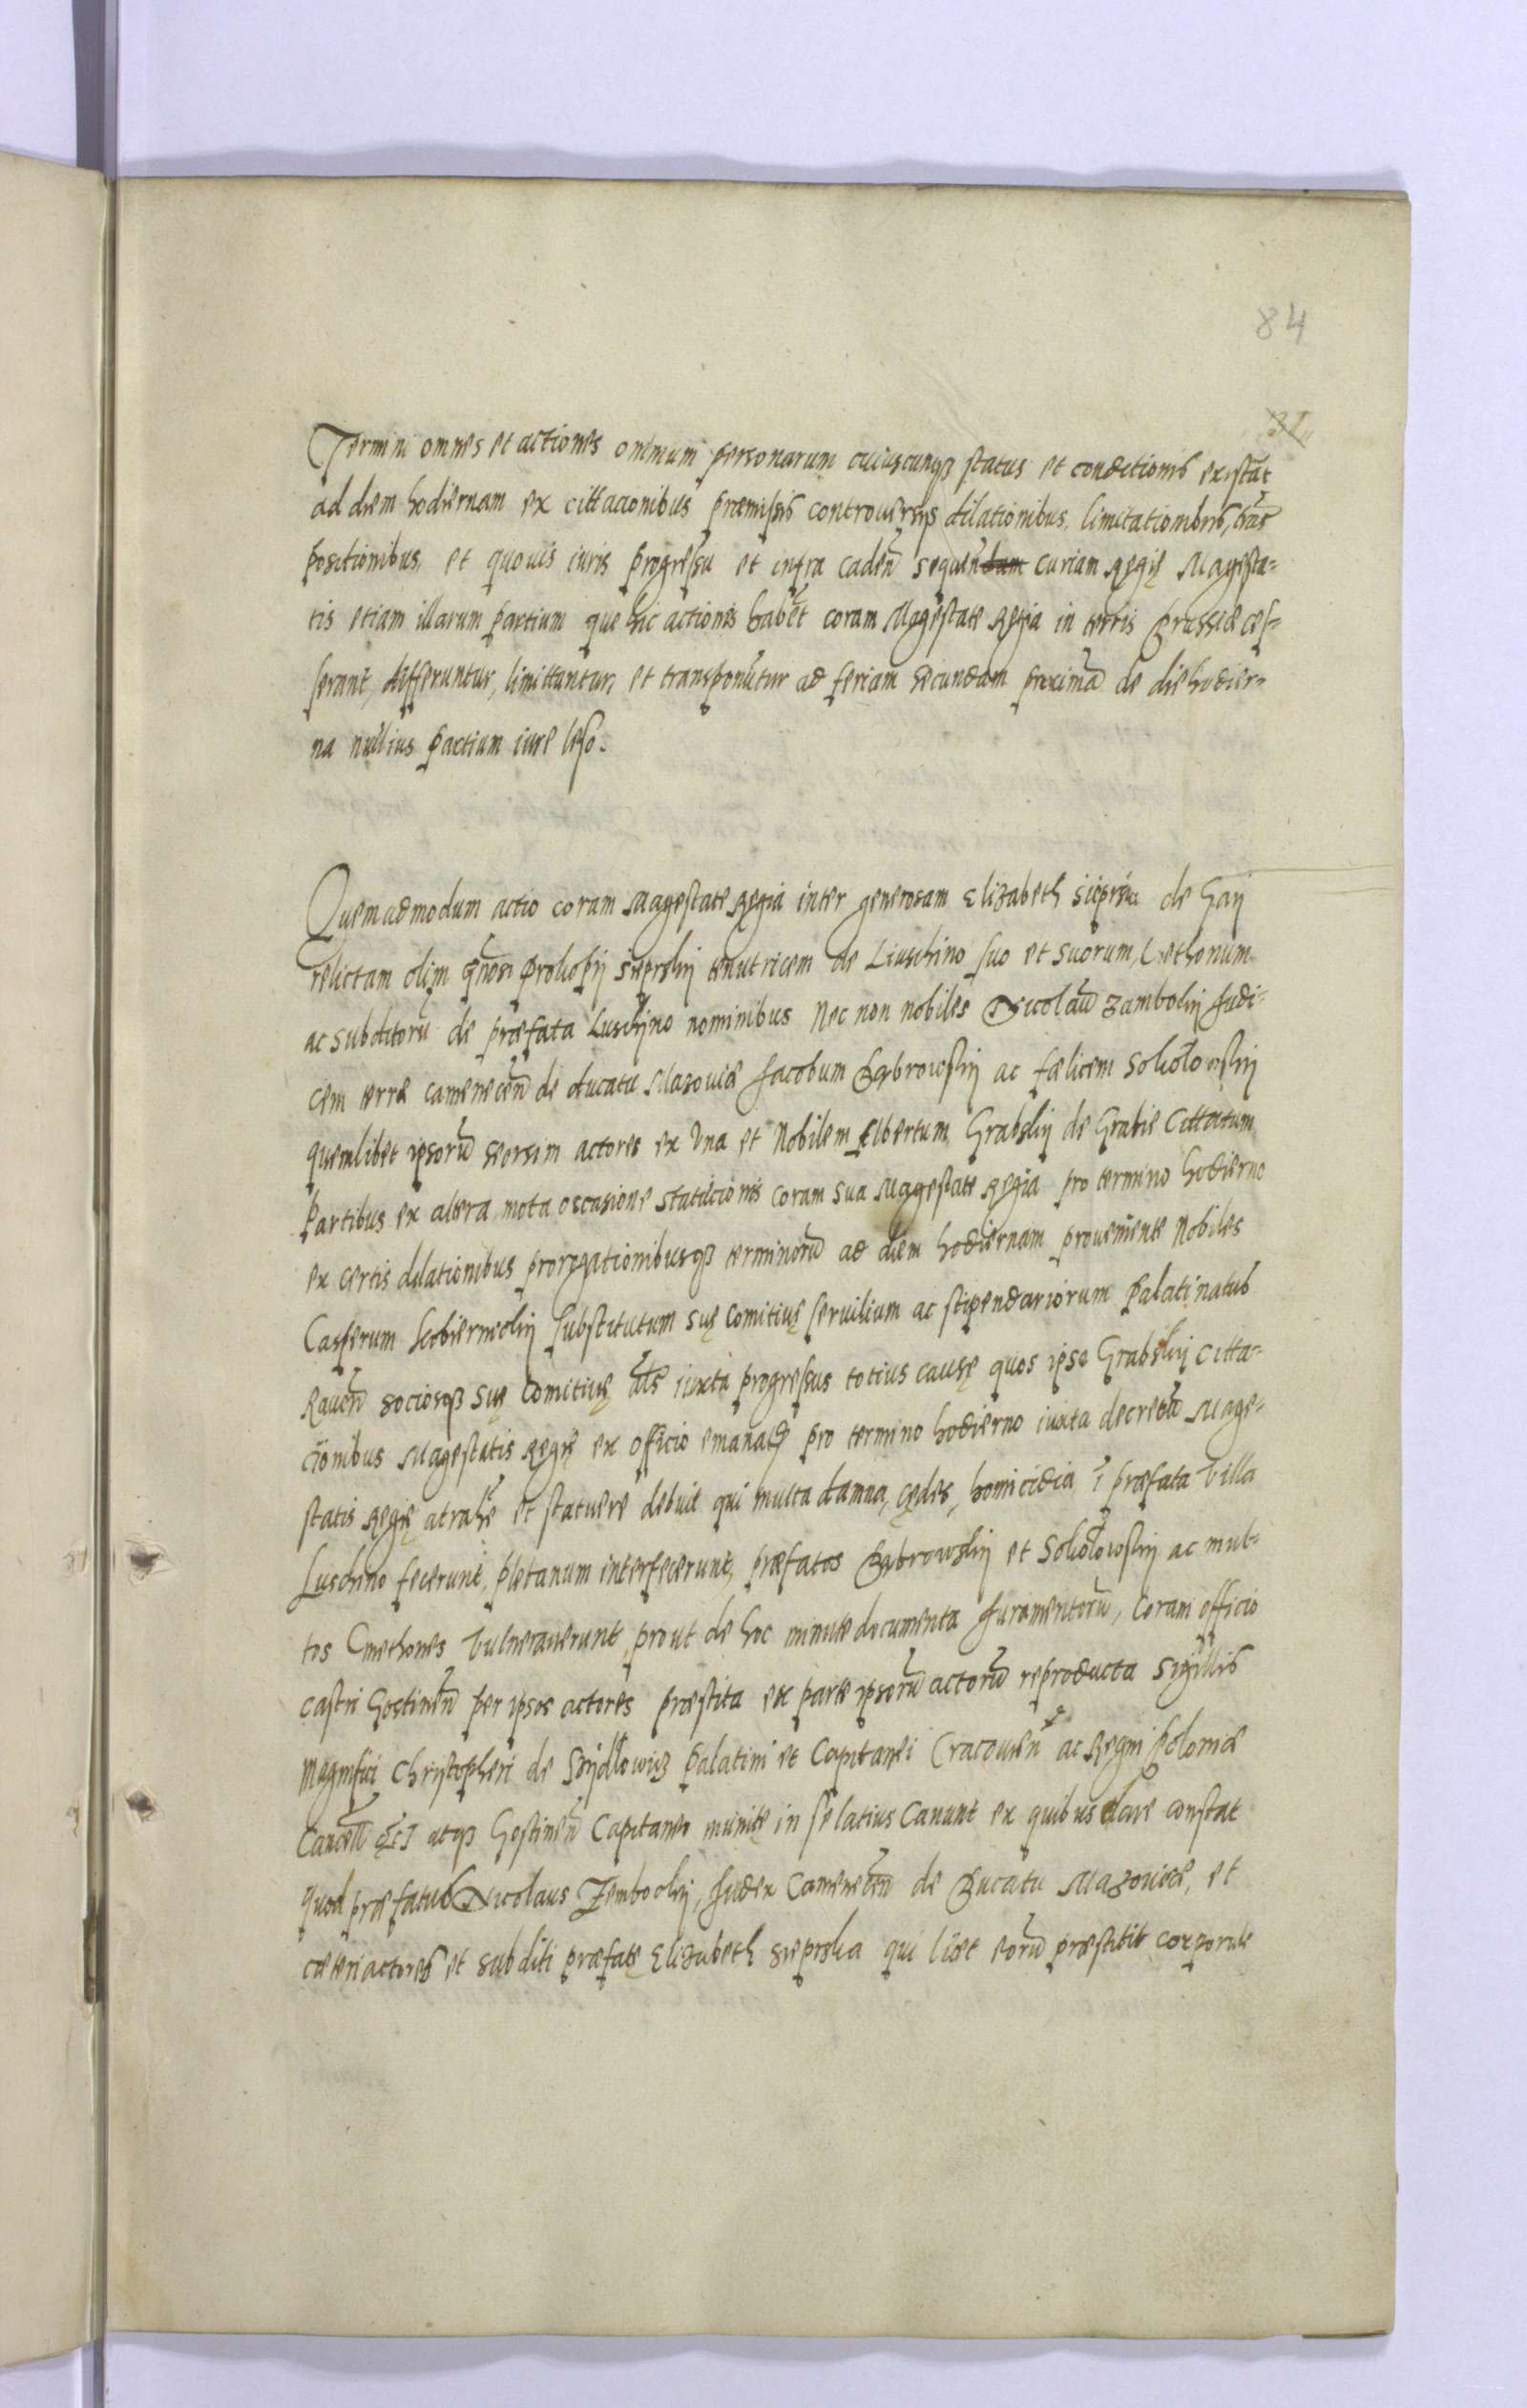 84
Termini omnes et actiones omnium personarum cuiuscunqꝫ status et conditionis existāt
ad diem hodiernam ex cittacionibus præmissis controuersijs dilationibus, limitationibus, trās
positionibus, et quouis iuris progressu et infra cadeñ sequen̄dam curiam Regię Magesta-
tis etiam illarum partium que hic actiones habēt coram Magestate Regia in terris Prussiæ ces-
serant, differuntur, limittuntur, et transponūtur ad feriam secundam proximā de die hodier-
na nullius partium iure leso.
Quemadmodum actio coram Magestate Regia inter generosam Elizabeth de Gaÿ
relictam olim gñosi Prokopij Sieprskij tenutricem de Liuschino suo et suorum, Cmethonum
ac subditorū de præfata Luschino nominibus Nec non nobiles Nicolaū Zambockij Judi-
cem terræ cameneceñ de ducatu Masouiæ Jacobum Bąbrowskij ac fælicem Sokołowskij
quemlibet ipsorū seorsim actores ex Vna et Nobilem Albertum Grabskij de Grabie Cittatum
Partibus ex altera mota occasione statucionis coram sua Magestate Regia pro termino hodierno
ex certis dilationibus prorogationibusqꝫ terminorū ad diem hodiernam proueniente Nobiles
Casperum substitutum suę Comitiuę seruilium ac stipendariorum Palatinatus
Raueñ sociosqꝫ suę Comitiuę als iuxta progressus totius causę quos ipse Grabskij citta-
cionibus Magestatis Regię ex officio emanatꝭ pro termino hodierno iuxta decretū Mage-
statis Regię atrahe et statuere debuit qui multa damna, cędes, homicidia ī præfata Villa
Luschino fecerunt, plebanum interfecerunt, præfatos Bąbrowskij et Sokołowskij ac mul-
tos Cmethones Vulnerauerunt prout de hoc minute documenta Juramentorū, coram officio
castri Gostineñ per ipsos actores præstita ex parte ipsorū actorū reproducta Sigillis
Magnifici Christopheri de Schÿdłowicz Palatini et Capitanei Cracouieñ ac Regni Poloniæ
Cancell atqꝫ Gostineñ Capitanei munite in se latius Canunt ex quibus clare constat
quod præfatus Nicolaus Zembockij, Judex Cameneceñ de Ducatu Mazouiæ, et
cæteri actores et subditi præfatę Elizabeth Sieprska qui libet eorū præstitit corporale